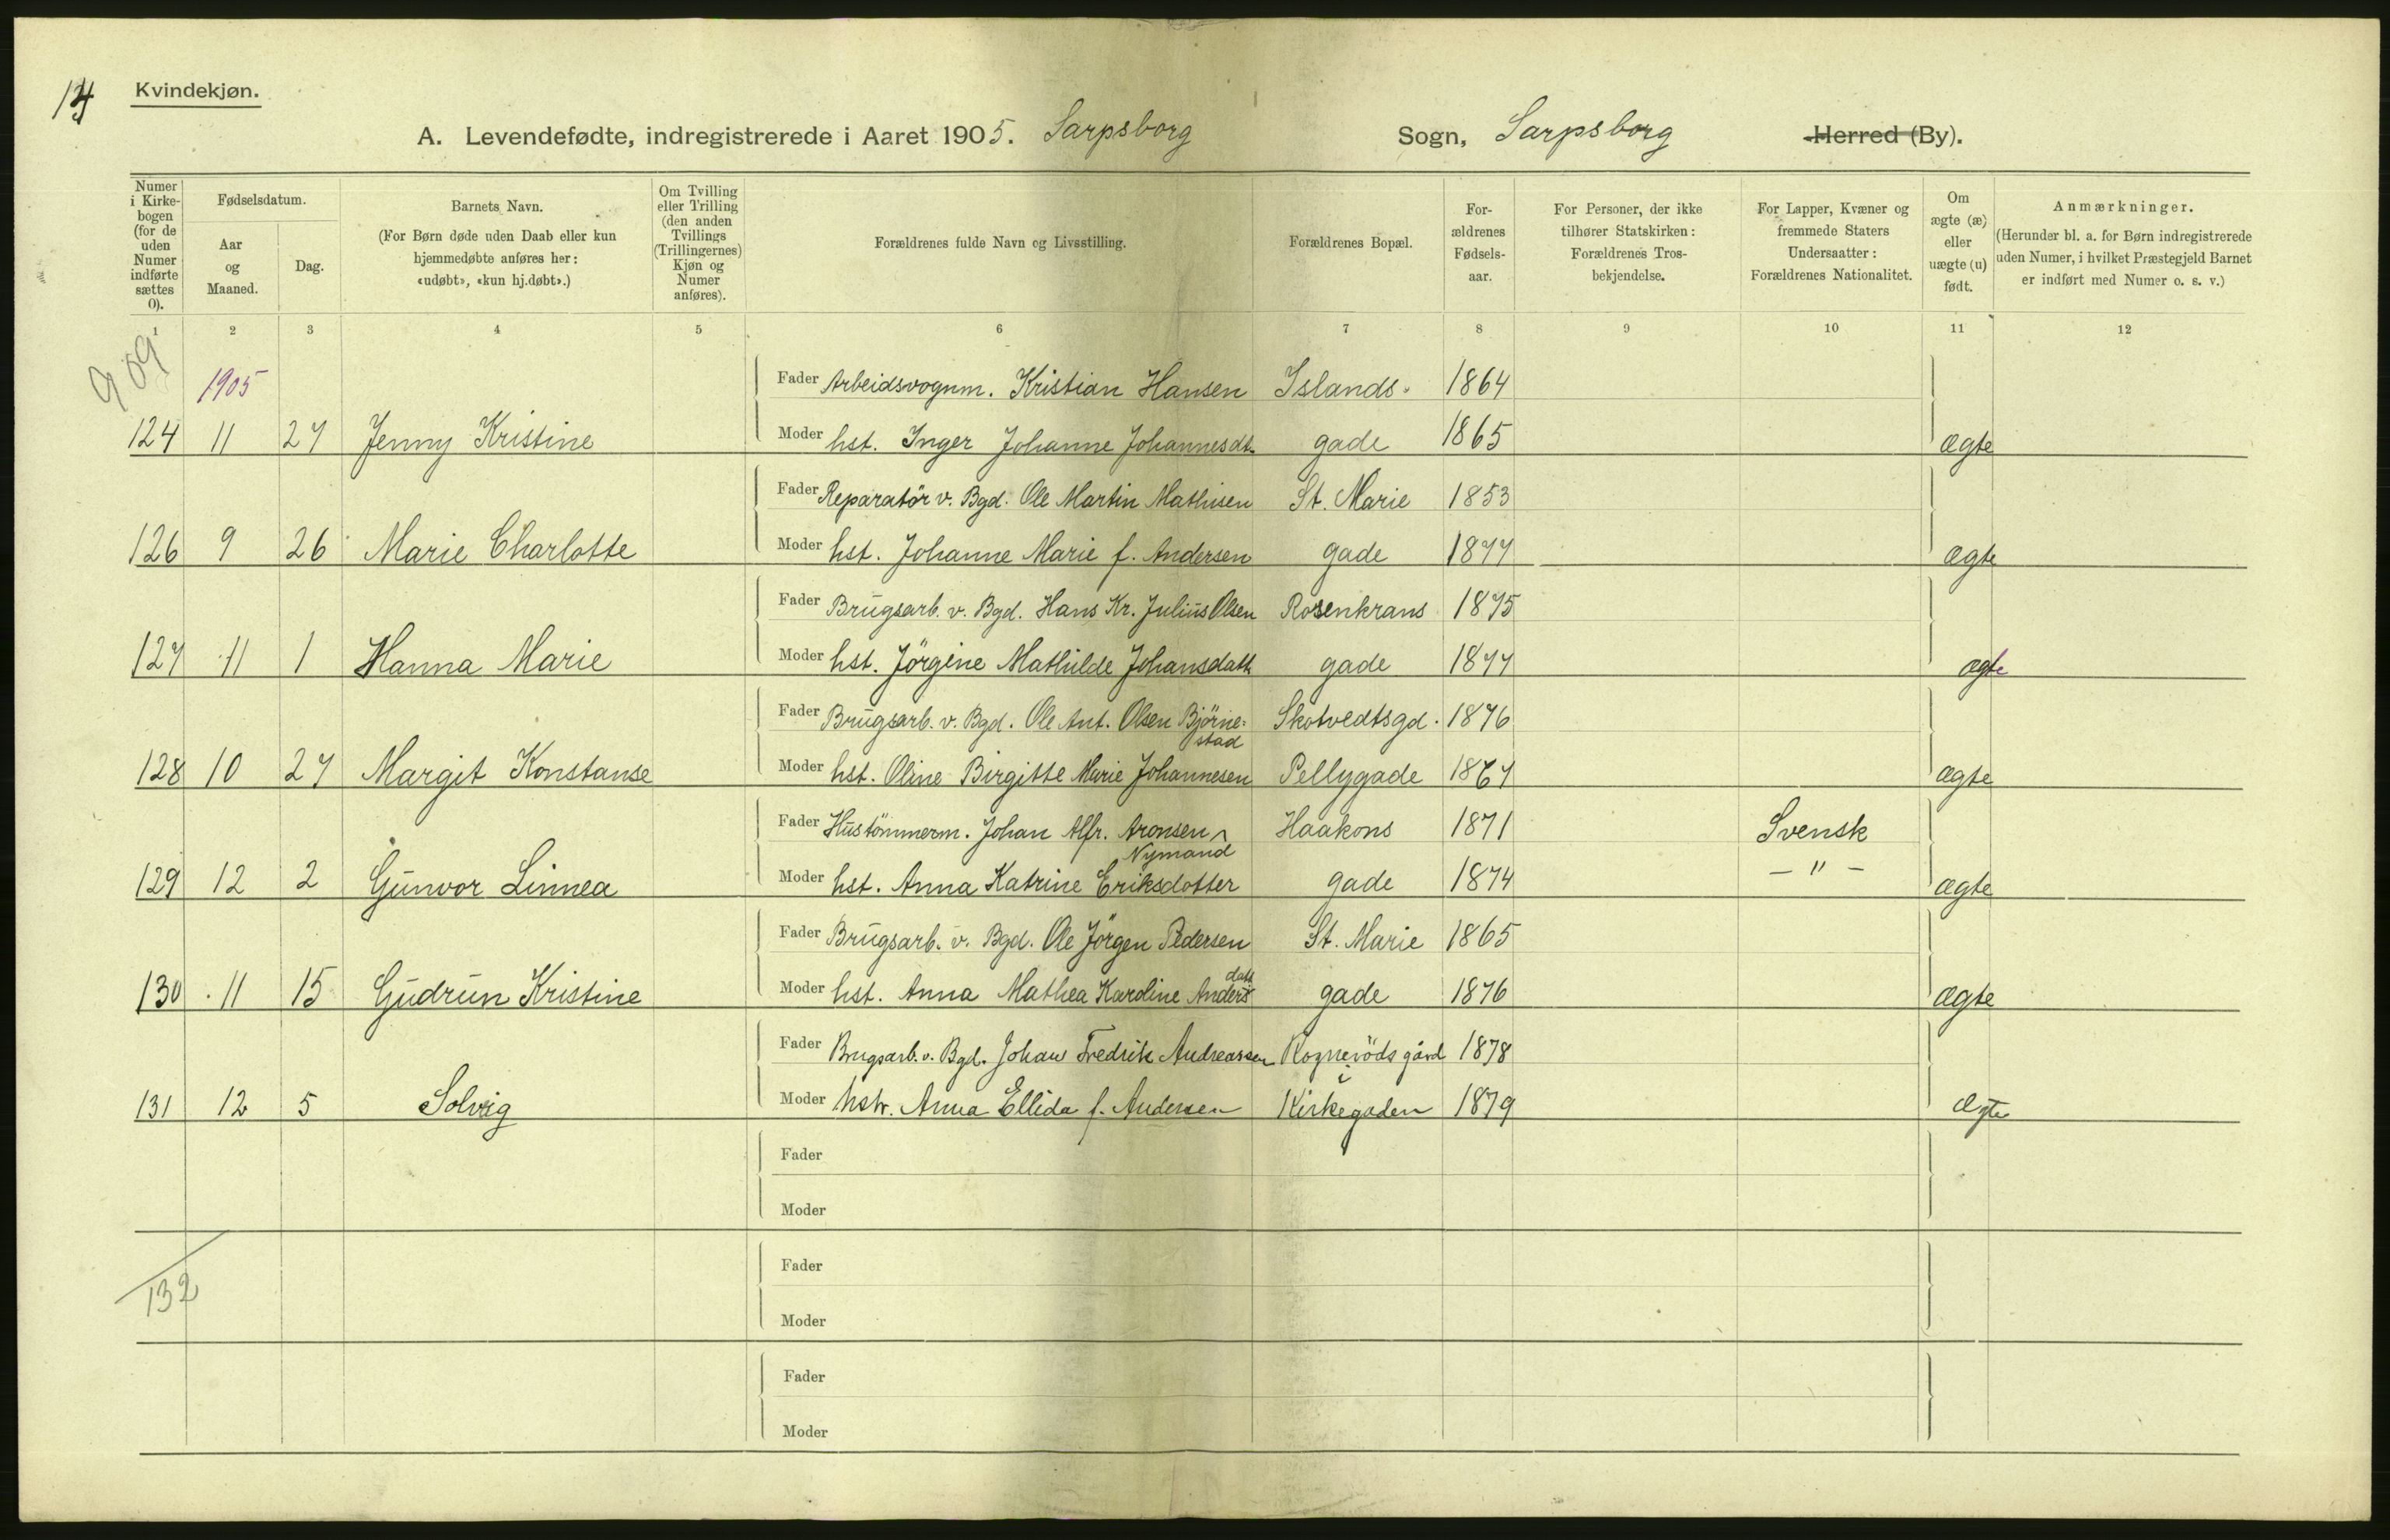 Kvindekjøn.
A. Levendefødte, indregistrerede i Aaret 1905. Sarpsborg Sogn, Sarpsborg Herred (By).
Numer i Kirkebogen (for de uden Numer indførte sættes 0).
Fødselsdatum.
Aar og Maaned.
Dag.
Barnets Navn.
(For Børn døde uden Daab eller kun hjemmedøbte anføres her: «udøbt», «kun hj.døbt».)
Om Tvilling eller Trilling (den anden Tvillings (Trillingernes) Kjøn og Numer anføres).
Forældrenes fulde Navn og Livsstilling.
Forældrenes Bopæl.
For-ældrenes Fødsels-aar.
For Personer, der ikke tilhører Statskirken: Forældrenes Tros-bekjendelse.
For Lapper, Kvæner og fremmede Staters Undersaatter: Forældrenes Nationalitet.
Om ægte (æ) eller uægte (u) født.
Anmærkninger.
(Herunder bl. a. for Børn indregistrerede uden Numer, i hvilket Præstegjeld Barnet er indført med Numer o. s. v.)
1 2 3 4 5 6 7 8 9 10 11 12
909
1905 Fader Arbeidsvognm. Kristian Hansen Islands- 1864
124 11 27 Jenny Kristine Moder hst. Inger Johanne Johannesdt. gade 1865 ægte
Fader Reparatör v. Bgd. Ole Martin Mathisen St. Marie 1853
126 9 26 Marie Charlotte Moder hst. Johanne Marie f. Andersen gade 1877 ægte
Fader Brugsarb. v. Bgd. Hans Kr. Julius Olsen Rosenkrans 1875
127 11 1 Hanna Marie Moder hst. Jörgine Mathilde Johansdatt. gade 1877 ægte
Fader Brugsarb. v. Bgd. Ole Ant. Olsen Björne- Skotvedtsgd. 1876
stad
128 10 27 Margit Konstanse Moder hst. Oline Birgitte Marie Johannesen Pellygade 1867 ægte
Fader Hustömmerm. Johan Alfr. Aronsen Haakons 1871 Svensk
Nymand
129 12 2 Gunvor Linnea Moder hst. Anna Katrine Eriksdotter gade 1874 — " — ægte
Fader Brugsarb. v. Bgd. Ole Jörgen Pedersen St. Marie 1865
datt
130 11 15 Gudrun Kristine Moder hst. Anna Mathea Karoline Anders gade 1876 ægte
Fader Brugsarb. v. Bgd. Johan Fredrik Andreassen gård 1878
i
131 12 5 Solvig Moder hstr. Anna Ellida f. Andersen Kirkegaden 1879 ægte
Fader
Moder
Fader
132
Moder
Fader
Moder